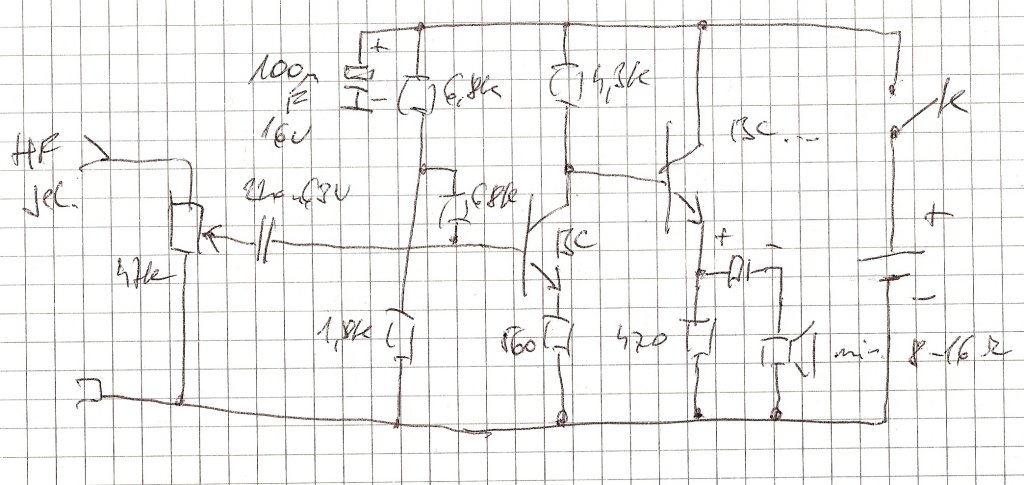 +
100n
F
16V
-
6,8k
4,3k
BC...
k
HF
jel.
22n 63V
68k
47k
BC
+
-
+
-
1,8k
560
470
min. 8-16 Ω